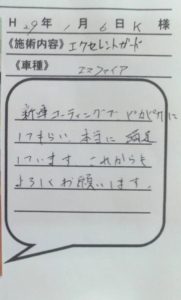 H 29年 1月 6日 K 様
《施術内容》エクセレントガード
《車種》 エスクァイア
新車コーティングで ピカピカに
してもらい 本当に 満足
しています。これからも
よろしくお願いします。